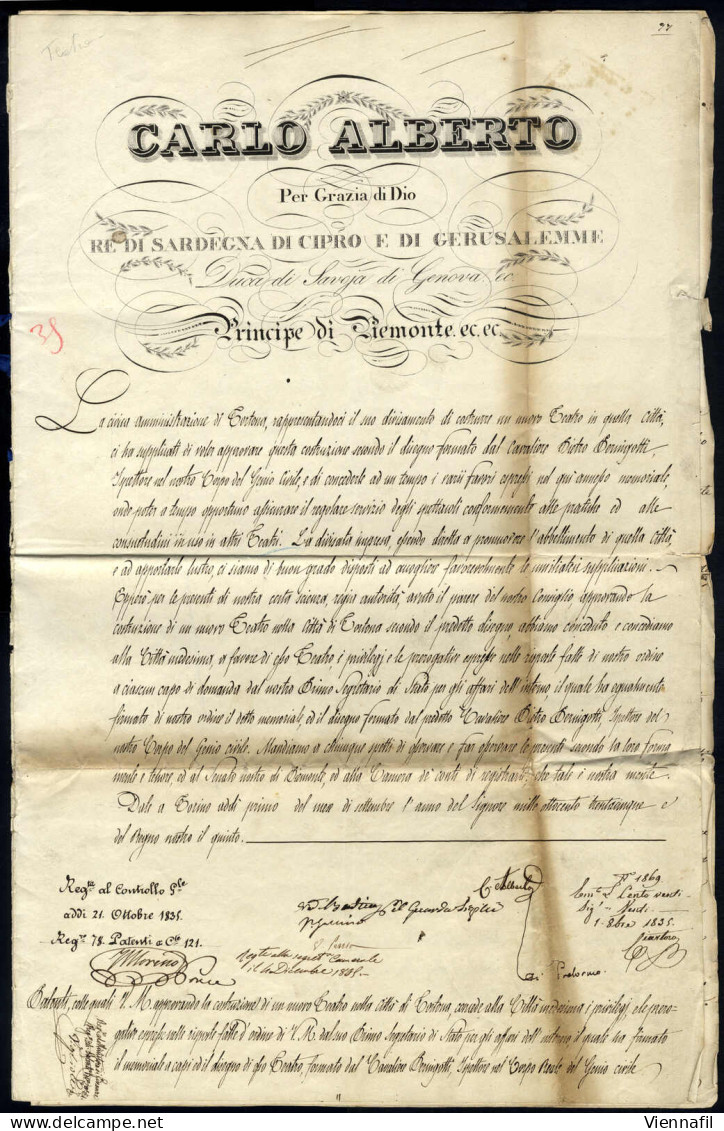 Teatro
37
CARLO ALBERTO
Per Grazia di Dio
RE DI SARDEGNA DI CIPRO E DI GERUSALEMME
Duca di Savoja di Genova. ec.
Principe di Piemonte. ec. ec.
35
La civica amministrazione di Tortona, rappresentandoci il suo divisamento di costrurre un nuovo Teatro in quella Città,
ci ha supplicati di voler approvare questa costruzione secondo il disegno formato dal Cavaliere Pietro Bernigotti,
Ispettore nel nostro Corpo del Genio Civile, e di concederle ad un tempo i varii favori espressi nel qui annesso memoriale,
onde poter a tempo opportuno assicurare il regolare servizio degli spettacoli conformemente alle pratiche ed alle
consuetudini in uso in altri Teatri. La divisata impresa, essendo diretta a promuovere l'abbellimento di quella Città,
e ad apportarle lustro, ci siamo di buon grado disposti ad accogliere favorevolmente le suppplicazioni.
Epperò per le presenti di nostra certa scienza, regia autorità, avuto il parere del nostro Consiglio approvando la
costruzione di un nuovo Teatro nella Città di Tortona secondo il predetto disegno, abbiamo conceduto e concediamo
alla Città medesima, a favore di esso Teatro, i privilegj e le prerogative espresse nelle risposte fatte di nostro ordine
a ciascun capo di domanda dal nostro Primo Segretario di Stato per gli affari dell'interno, il quale ha egualmente
firmato di nostro ordine il detto memoriale, ed il disegno formato dal predetto Cavaliere Pietro Bernigotti, Ispettore del
nostro Corpo del Genio civile. Mandiamo a chiunque spetti di osservare e far osservare le presenti secondo la loro forma
mente e tenore, ed al Senato nostro di Piemonte, ed alla Camera de' conti di registrarle, che tale è nostra mente.
Date a Torino addì primo del mese di settembre l'anno del Signore mille ottocento trentacinque e
del Regno nostro il quinto.
Reg.te al Controllo G.le
addì 21. Ottobre 1835.
Reg.o 78. Patenti a C.te 121.
Moreno
C. Alberto
il Guarda Sigilli
di Pralormo
N. 1869
Cento venti
1835.
Camerale
il Dicembre 1835.
Patenti, colle quali V. M. approvando la costruzione di un nuovo Teatro nella città di Tortona, concede alla Città medesima i privilegj, e le prero-
gative espresse nelle risposte fatte d'ordine di V. M. dal suo Primo Segretario di Stato per gli affari dell'interno il quale ha firmato
il memoriale a capi ed il disegno di esso Teatro, formato dal Cavaliere Bernigotti, Ispettore nel Corpo Reale del Genio civile
Viennafil